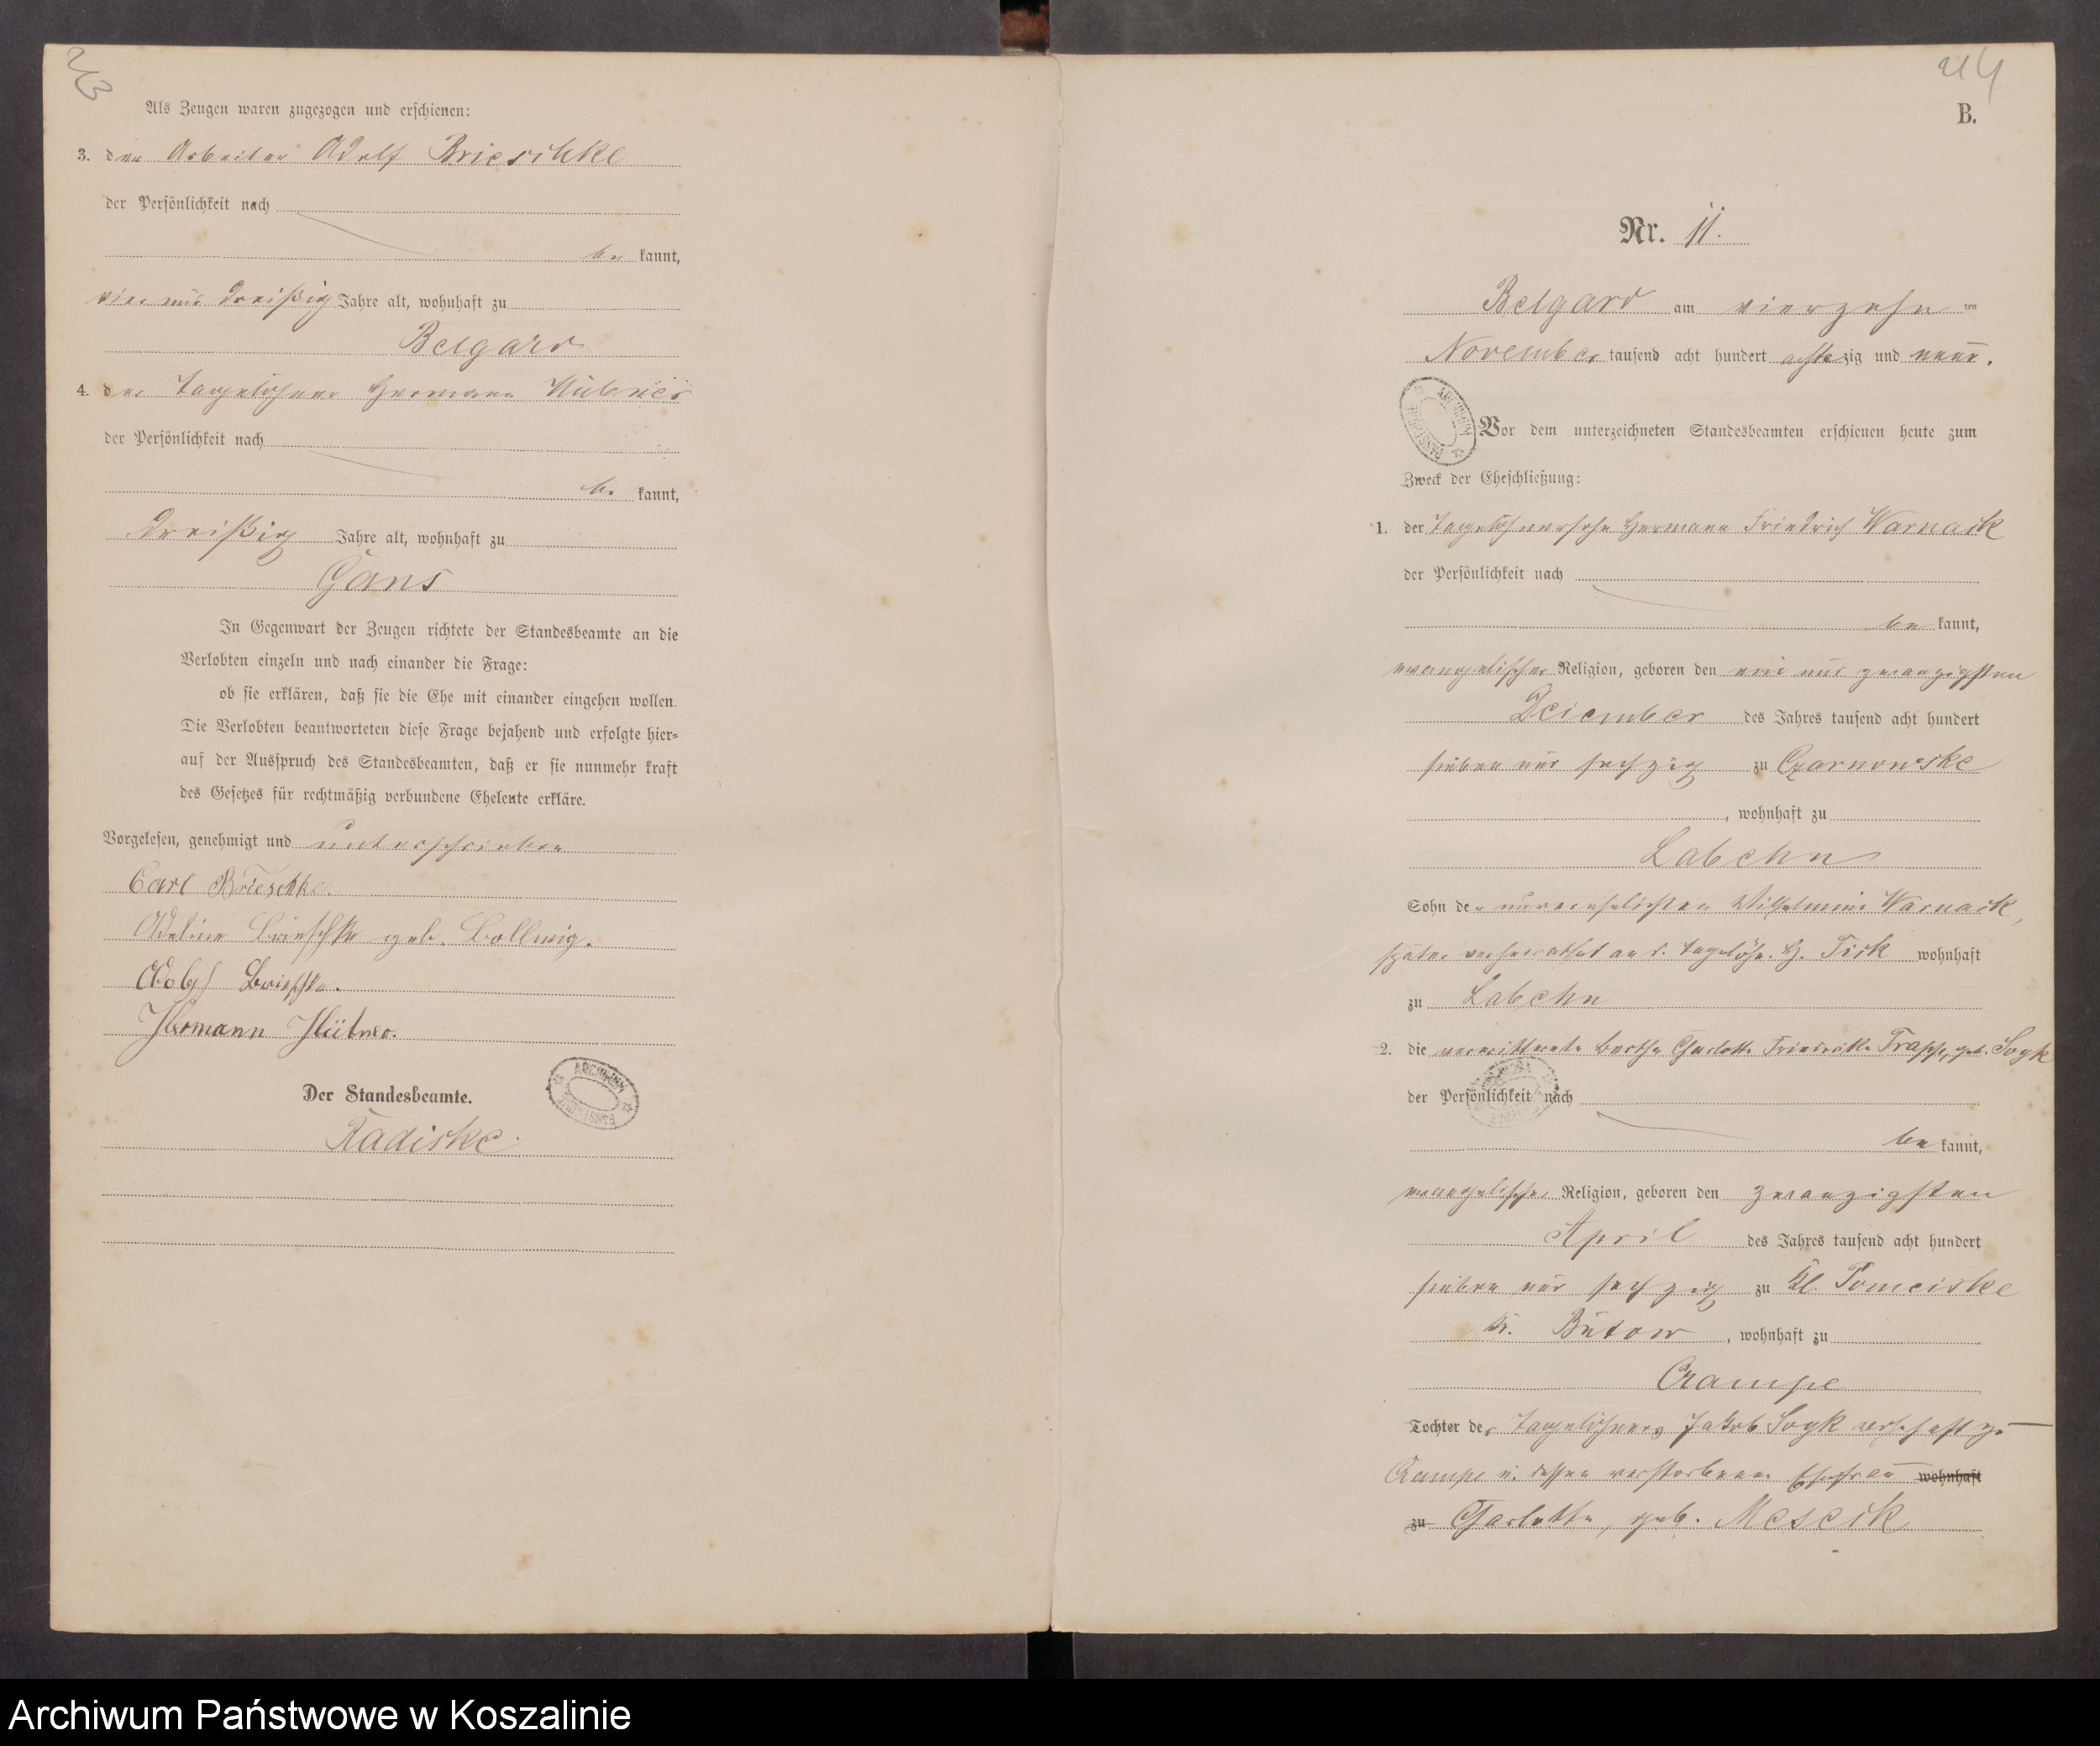 23
Als Zeugen waren zugezogen und erschienen:
3. der Arbeiter Adolf Brieschke
der Persönlichkeit nach
be kannt,
vier und dreißig Jahre alt, wohnhaft zu
Belgard
4. der Tagelöhner Hermann Hübner
der Persönlichkeit nach
be kannt,
dreißig Jahre alt, wohnhaft zu
Gans
In Gegenwart der Zeugen richtete der Standesbeamte an die
Verlobten einzeln und nach einander die Frage:
ob sie erklären, daß sie die Ehe mit einander eingehen wollen.
Die Verlobten beantworteten diese Frage bejahend und erfolgte hier-
auf der Ausspruch des Standesbeamten, daß er sie nunmehr kraft
des Gesetzes für rechtmäßig verbundene Eheleute erkläre.
Vorgelesen, genehmigt und unterschrieben
Carl Brieschke.
Adeline Brieschke geb. Bollwig.
Adolf Brieschke.
Hermann Hübner.
Der Standesbeamte.
Radiske.
24
B.
Nr. 11.
Belgard am vierzehn ten
November tausend acht hundert achtzig und neun.
Vor dem unterzeichneten Standesbeamten erschienen heute zum
Zweck der Eheschließung:
1. der Tagelöhnersohn Hermann Friedrich Warnack
der Persönlichkeit nach
be kannt,
evangelischer Religion, geboren den ein und zwanzigsten
Dezember des Jahres tausend acht hundert
sieben und sechzig zu Czarnowske
, wohnhaft zu
Labehn
Sohn der unverehelichten Wilhelmine Warnack,
später verheirathet an d. Tagelöhn. H. Tick wohnhaft
zu Labehn
2. die verwittwete Bertha Charlotte Friedrike Trapp, geb. Sogk
der Persönlichkeit nach
be kannt,
evangelischer Religion, geboren den zwanzigsten
April des Jahres tausend acht hundert
sieben und sechzig zu Kl. Pomeiske
Kr. Bütow, wohnhaft zu
Crampe
Tochter des Tagelöhners Jakob Sogk wohnhaft zu
Crampe u. dessen verstorbenen Ehefrau wohnhaft
zu Charlotte, geb. Meseck
ARCHIWUM PAŃSTWOWE
Archiwum Państwowe w Koszalinie